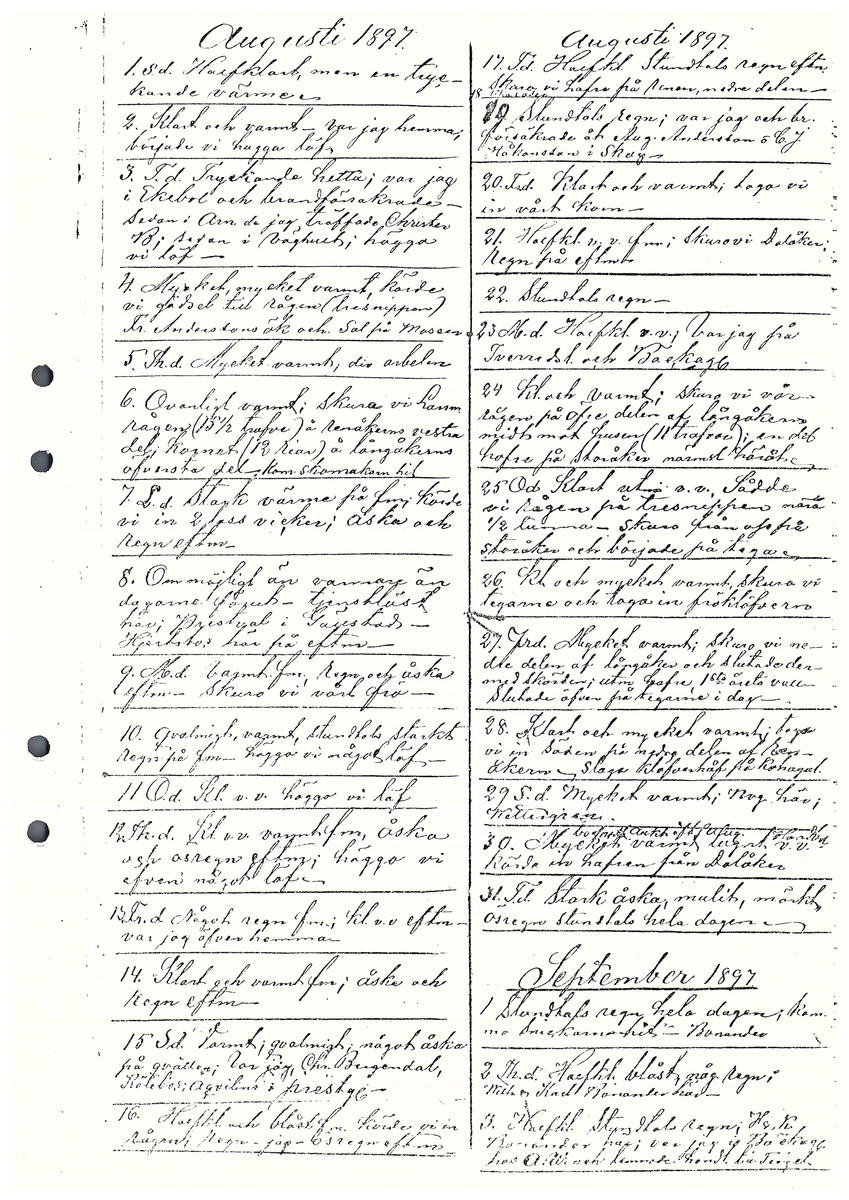 Augusti 1897.
1. S.d. Halfklart, men en tryc-
kande värme
2. Klart och varmt – var jag hemma;
började vi hugga löf
3. T.d. Tryckande hetta; var jag
i Ekebol och brandförsäkrade –
sedan i Arn. de jag träffade Christer
B; sedan i Våghult; höggo
vi löf –
4. Mycket, mycket varmt, körde
vi gödsel till rågen (tresnippen)
Fr. Anderssons ök och Sal på Mossen
5. Th.d. Mycket varmt, div arbeten
6. Ovanligt varmt; skuro vi hann
rågen (15 1/2 trafve) å renåkerns vestra
del; kornet (12 riar) å långåkerns
öfversta del. Kom skomakarn hit
7. L.d. Stark värme på fm; körde
vi in 2 lass vicker; åska och
regn eftm –
8. Om möjligt än varmare än
dagarne förut – tjenstlöst
här; Prestval i Gågstad –
Hjertsbos här på eftm –
9. M.d. Varmt fm, Regn och åska
eftm – skuro vi vårt frö –
10. qvalmigt, varmt, stundtals starkt
regn på fm – höggo vi något löf –
11 O.d. Kl. v.v. höggo vi löf
12. Th.d. Kl. v.v. varmt fm, åska
och ösregn eftm; höggo vi
efven något löf –
13. Fr.d Något regn fm; kl. v.v eftm –
var jag öfven hemma
14. Klart och varmt fm; åska och
regn eftm –
15 Sd. Varmt; qvalmigt; något åska
på qvällen; Var jag, Chr. Bergendal,
Rölebo; Aqvilius i prestg –
16. Halfkl. och blåst fm. körde vi in
rågen; Regn – ösregn eftm –
Augusti 1897.
17. Td. Halfkl. Stundtals regn eftm
skuro vi hafre på renen, nedre delen –
19 Stundtals regn; var jag och br.
försäkrade åt Aug. Andersson o C.J.
Håkansson i Skog –
20. Frd. Klart och varmt; togo vi
in vårt korn –
21. Halfkl. v. v. fm; skuro vi Dalåker;
Regn på eftm
22. Stundtals regn –
23 M.d. Halfkl. v.v.; Var jag på
Tverredst. och Backagb
24 kl. och varmt; skuro vi vår-
rågen på öfre delen af långåkern
midt mot husen (11 trafvar); en del
hafre på storåker närmst häråt
25 Od Klart v.v. Sådde
vi rågen på tresnippen nära
1/2 tunna – skuro från ofvan på
storåker och började på tegar
26. Kl. och mycket varmt, skuro vi
tegarne och togo in fröklöfvern
27. Frd. Mycket varmt; skuro vi ne-
dre delen af långåker och slutade der-
med skörden; utm hafre 1sta årets vall
Slutade äfven på tegarne i dag –
28. Klart och mycket varmt; togo
vi in säden på nedre delen af Ren-
åkern – Slogo klöfverhäf på Kohagal.
29 S.d. Mycket varmt; Nyg här;
Wettergren.
30. Mycket varmt lugnt v.v.
körde in hafren från Dalåker
31. Td. Stark åska, mulit, mörkt,
Ösregn stundtals hela dagen –
September 1897
1 Stundtals regn hela dagen; kom-
mo snickarna hit – Bonander
2 Th.d. Halfkl. blåst, någ. regn;
Wilh o Karl Bonander här –
3. Halfkl. Stundtals regn; H. K.
Bonander här; var jag i Backagb
hos A.W. och lemnade